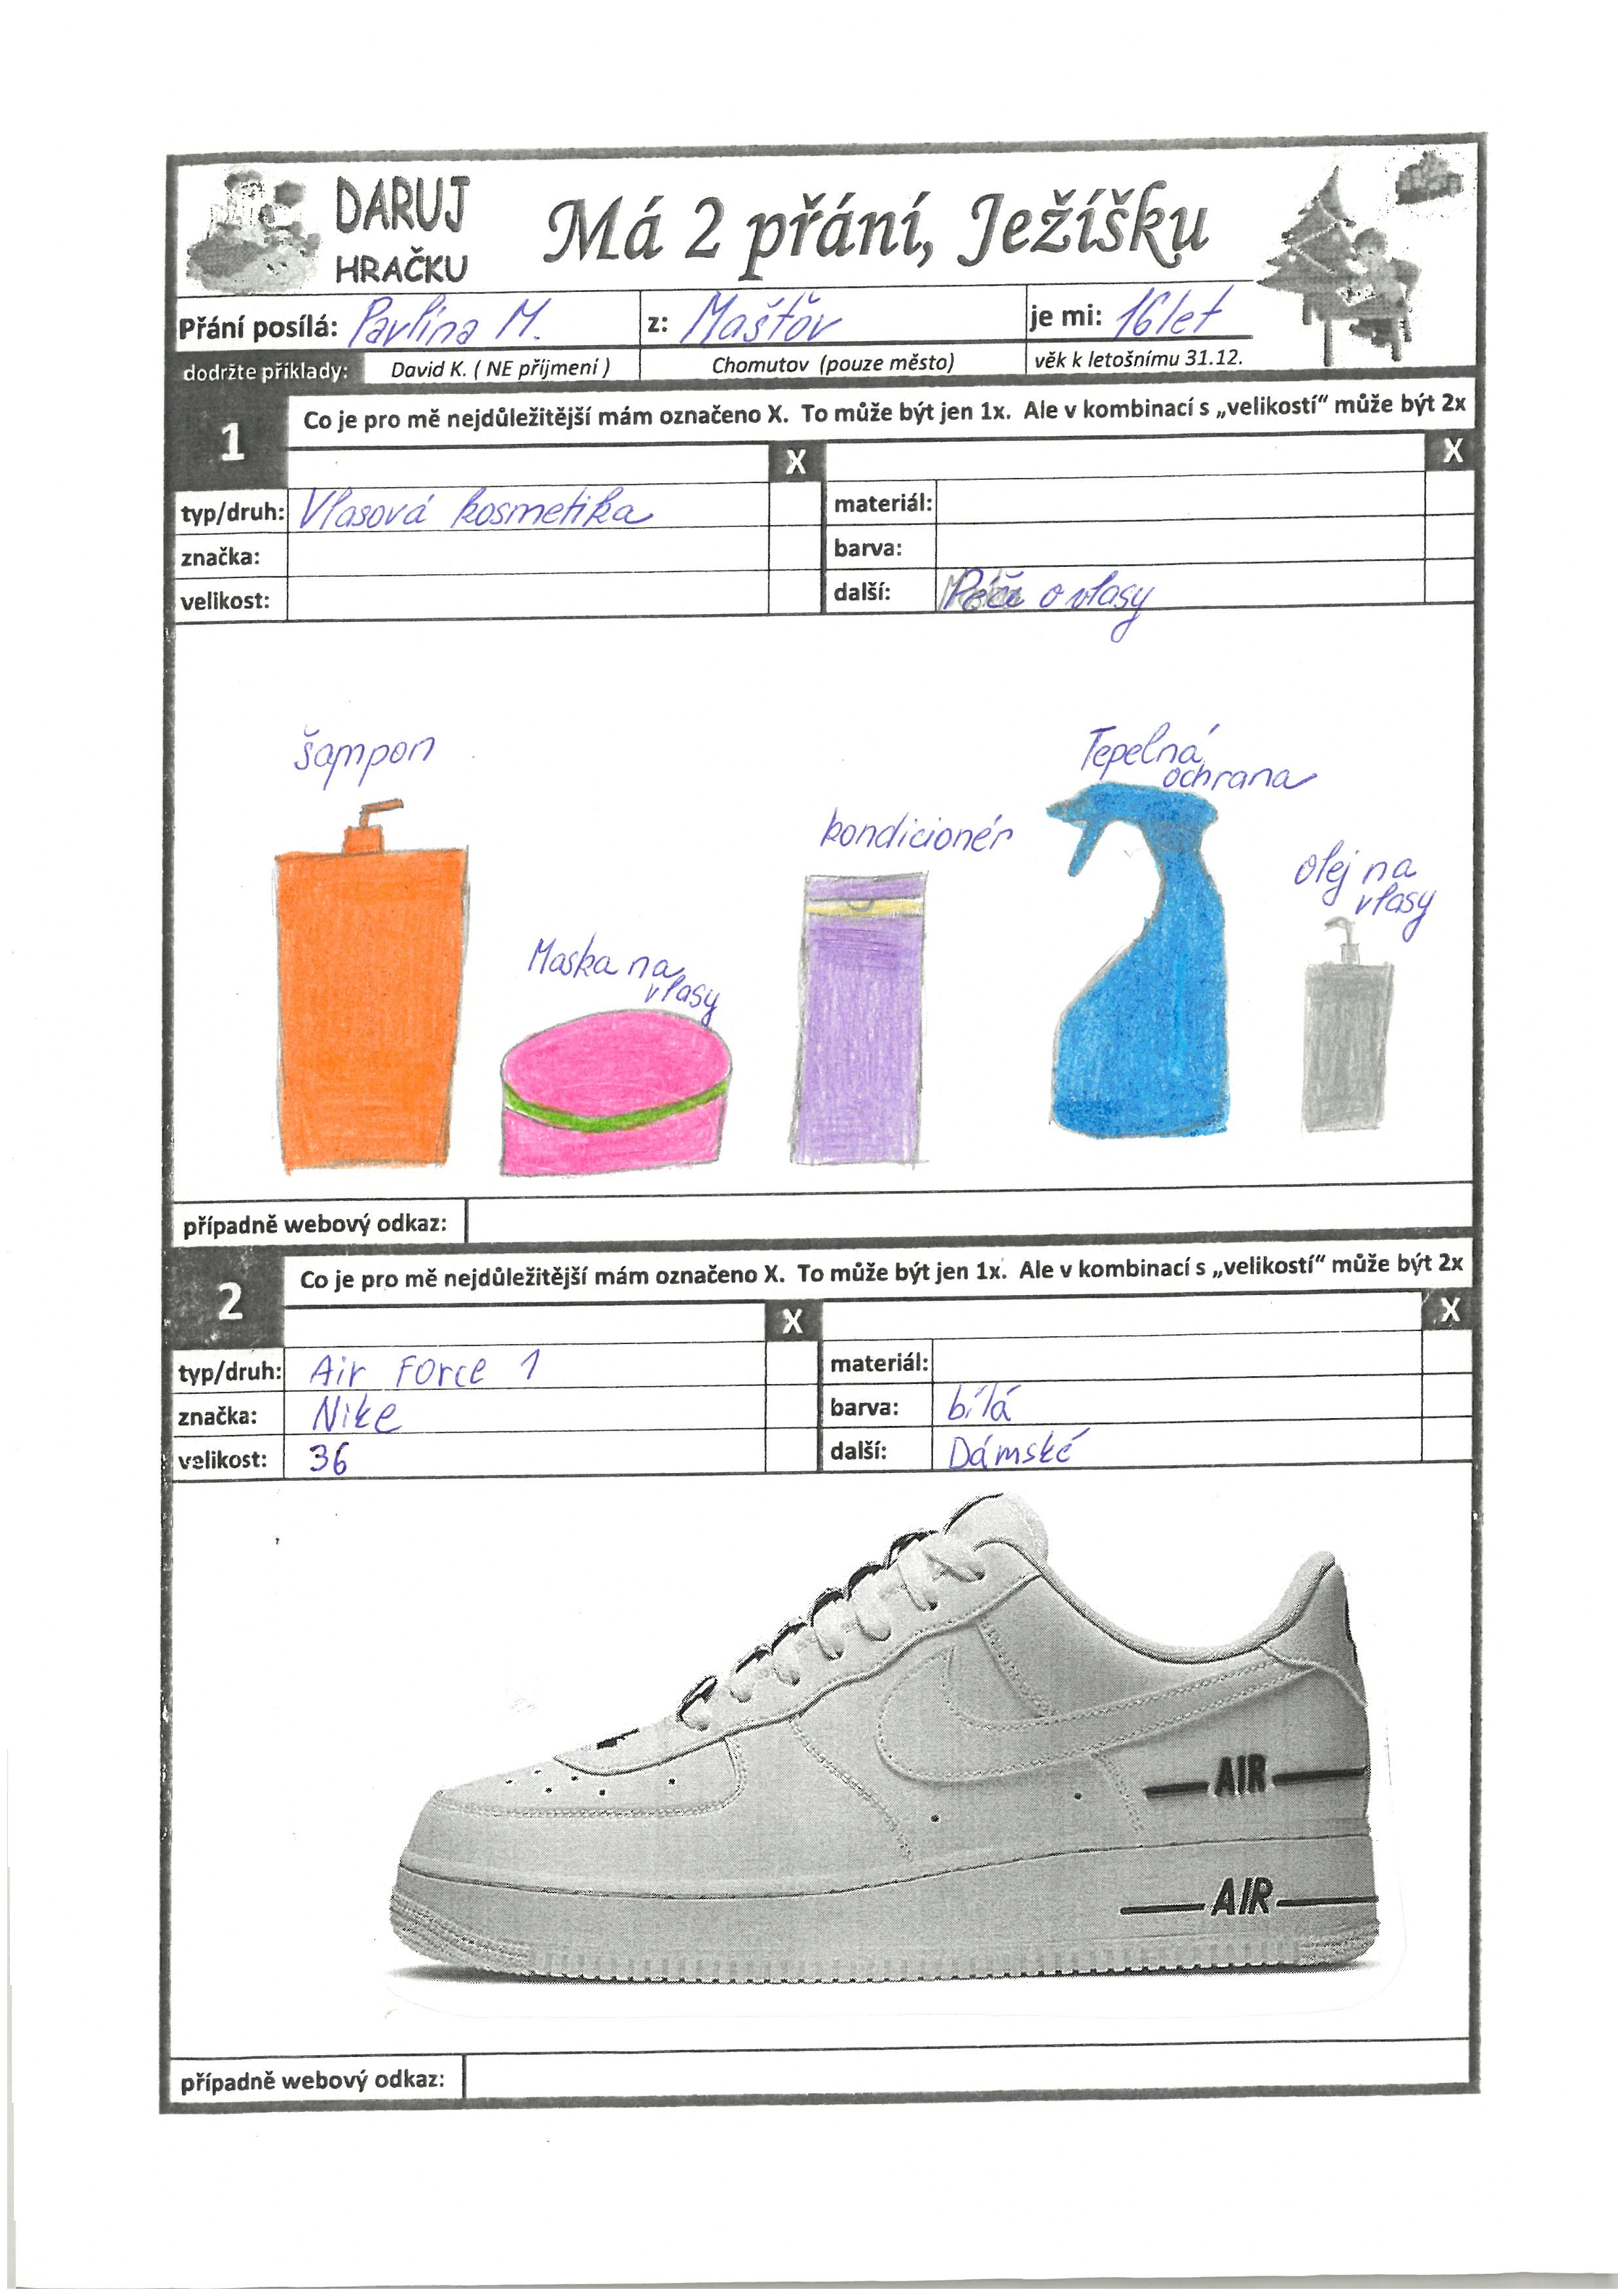 DARUJ
HRAČKU
Má 2 přání, Ježíšku
Přání posílá: Pavlína M. z: Mašťov je mi: 16let
dodržte příklady: David K. ( NE příjmení ) Chomutov (pouze město) věk k letošnímu 31.12.
1 Co je pro mě nejdůležitější mám označeno X. To může být jen 1x. Ale v kombinací s „velikostí“ může být 2x
X X
typ/druh: Vlasová kosmetika materiál:
značka: barva:
velikost: další: Péče o vlasy
šampon
Maska na
vlasy
kondicionér
Tepelná
ochrana
olej na
vlasy
případně webový odkaz:
2 Co je pro mě nejdůležitější mám označeno X. To může být jen 1x. Ale v kombinací s „velikostí“ může být 2x
X X
typ/druh: Air Force 1 materiál:
značka: Nike barva: bílá
velikost: 36 další: Dámské
AIR
AIR
případně webový odkaz: